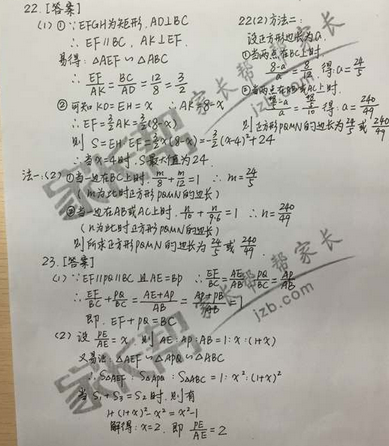 22.[答案]
(1) ① ∵EFGH为矩形, AD⊥BC
∴ EF∥BC, AK⊥EF.
易得: △AEF∽△ABC
∴ EF/AK = BC/AD = 12/8 = 3/2
② 可知 KD=EH=x ∴AK=8-x
∴EF=3/2AK=3/2(8-x)
则 S=EH·EF=3/2x(8-x)=-3/2(x-4)²+24
∴当x=4时, S最大值为24.
法一:(2) ①当一边在BC上时. m/8+m/12=1 ∴m=24/5
(m为此时正方形PQMN的边长)
②当一边在AB或AC上时. n/10+n/9.6=1 ∴n=240/49
(n为此时正方形PQMN的边长)
则所求正方形PQMN的边长为24/5或240/49
22(2)方法二:
设正方形边长为a.
①当两点在BC上时.
得: a=24/5
②当两点在AB或AC上时.
得: a=240/49
则正方形PQMN的边长为24/5或240/49
23.[答案]
(1) ∵EF∥PQ∥BC 且AE=BP ∴EF/BC=AE/AB, PQ/BC=AP/AB
∴ EF/BC+PQ/BC=AE+AP/AB=AP+PB/AB=1
即 EF+PQ=BC
(2) 设 PE/AE=x, 则 AE:AP:AB=1:x:(1+x)
又易得: △AEF∽△APQ∽△ABC
∴S△AEF:S△APQ:S△ABC=1:x²:(1+x)²
当 S₁+S₃=S₂时, 则有
1+(1+x)²-x²=x²-1
解得: x=2. 即 PE/AE=2
家长帮
家长帮
jzb.com
家长帮
jzb.com